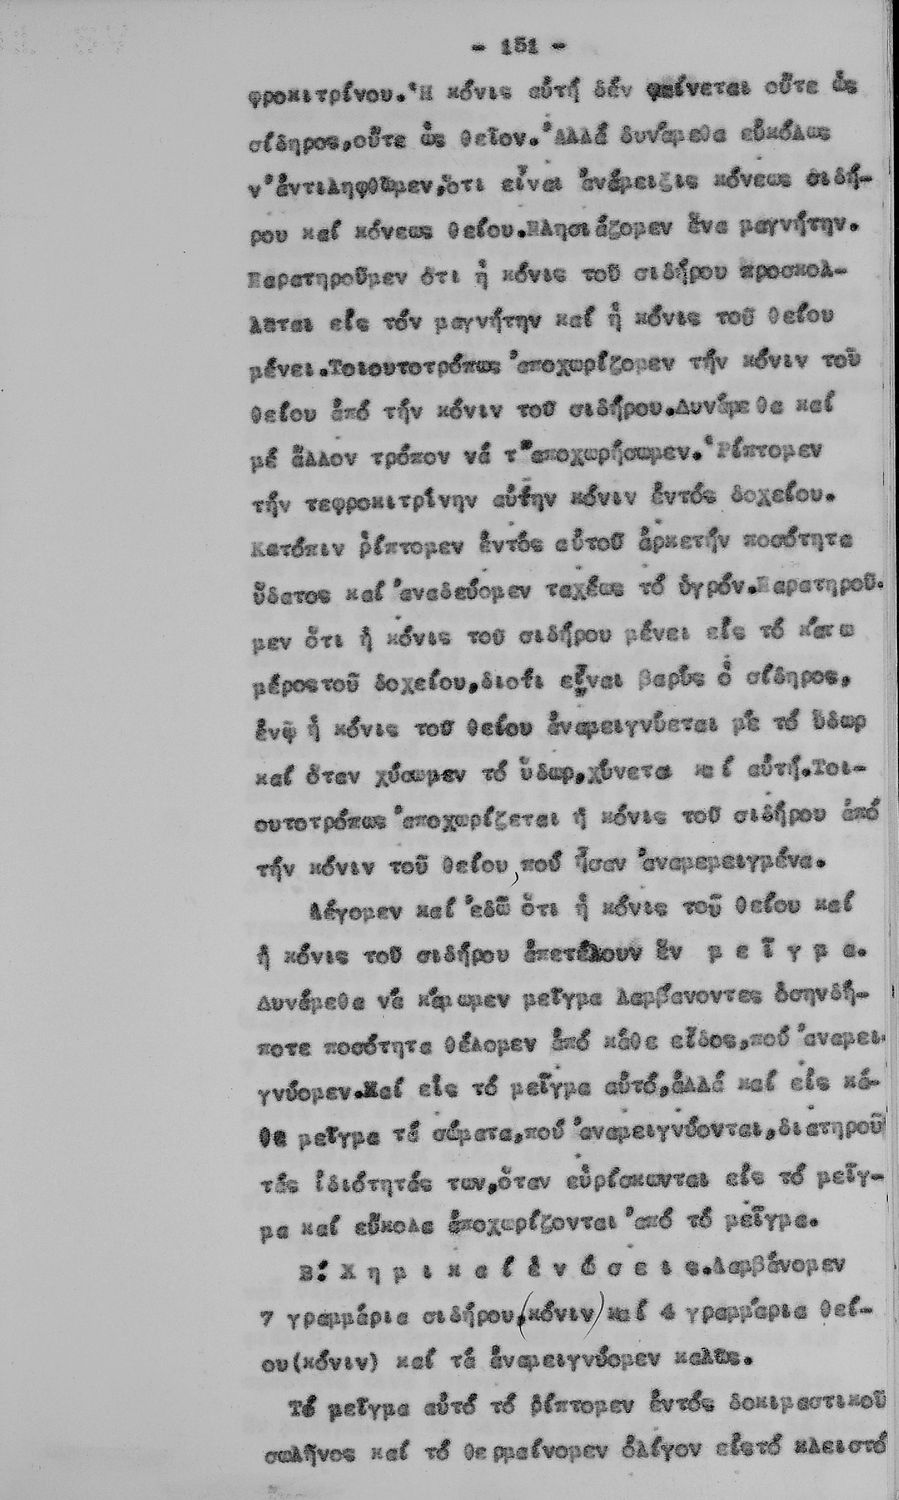 - 151 -
φροκιτρίνου.Ἡ κόνις αὐτή δέν φαίνεται οὔτε ὡς
σίδηρος,οὔτε ὡς θεῖον.Ἀλλά δυνάμεθα εὐκόλως
ν'ἀντιληφθῶμεν,ὅτι εἶναι ἀνάμειξις κόνεως σιδή-
ρου καί κόνεως θείου.Πλησιάζομεν ἕνα μαγνήτην.
Παρατηροῦμεν ὅτι ἡ κόνις τοῦ σιδήρου προσκολ-
λᾶται είς τόν μαγνήτην καί ἡ κόνις τοῦ θείου
μένει.Τοιουτοτρόπως ἀποχωρίζομεν τήν κόνιν τοῦ
θείου ἀπό τήν κόνιν τοῦ σιδήρου.Δυνάμεθα καί
μέ ἄλλον τρόπον νά τ'ἀποχωρήσωμεν.Ρίπτομεν
τήν τεφροκιτρίνην αὐτήν κόνιν ἐντός δοχείου.
Κατόπιν ρίπτομεν ἐντός αὐτοῦ ἀρκετήν ποσότητα
ὕδατος καί ἀναδεύομεν ταχέως τό ὑγρόν.Παρατηροῦ-
μεν ὅτι ἡ κόνις τοῦ σιδήρου μένει είς τό κάτω
μέροςτοῦ δοχείου,διότι εἶναι βαρύς ὁ σίδηρος,
ἐνῷ ἡ κόνις τοῦ θείου ἀναμειγνύεται μέ τό ὕδωρ
καί ὅταν χύσωμεν τό ὕδωρ,χύνεται καί αὐτή.Τοι-
ουτοτρόπως ἀποχωρίζεται ἡ κόνις τοῦ σιδήρου ἀπό
τήν κόνιν τοῦ θείου,πού ἦσαν ἀναμεμειγμένα.
Λέγομεν καί ἐδῶ ὅτι ἡ κόνις τοῦ θείου καί
ἡ κόνις τοῦ σιδήρου ἀπετέλουν ἕν μ ε ῖ γ μ α.
Δυνάμεθα νά κάμωμεν μεῖγμα λαμβάνοντες ὁσηνδή-
ποτε ποσότητα θέλομεν ἀπό κάθε εἶδος,πού ἀναμει-
γνύομεν.Καί είς τό μεῖγμα αὐτό,ἀλλά καί είς κά-
θε μεῖγμα τά σώματα,πού ἀναμειγνύονται,διατηροῦν
τάς ἰδιότητάς των,ὅταν εὑρίσκωνται είς τό μεῖγ-
μα καί εὔκολα ἀποχωρίζονται ἀπό τό μεῖγμα.
Β! Χ η μ ι κ α ί ἑ ν ώ σ ε ι ς.Λαμβάνομεν
7 γραμμάρια σιδήρου,(κόνιν)καί 4 γραμμάρια θεί-
ου(κόνιν) καί τά ἀναμειγνύομεν καλῶς.
Τό μεῖγμα αὐτό τό ρίπτομεν ἐντός δοκιμαστικοῦ
σωλῆνος καί τό θερμαίνομεν ὀλίγον είςτό κλειστό